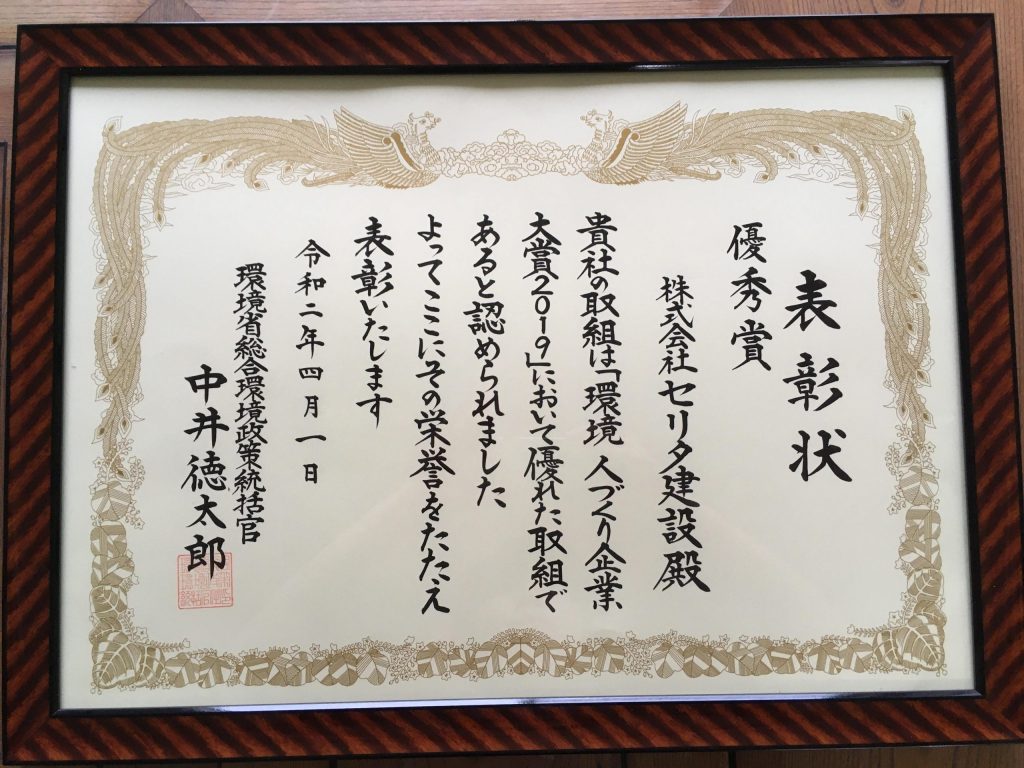 表彰状
優秀賞
株式会社セリタ建設殿
貴社の取組は「環境 人づくり企業
大賞2019」において優れた取組で
あると認められました
よってここにその栄誉をたたえ
表彰いたします
令和二年四月一日
環境省総合環境政策統括官
中井徳太郎